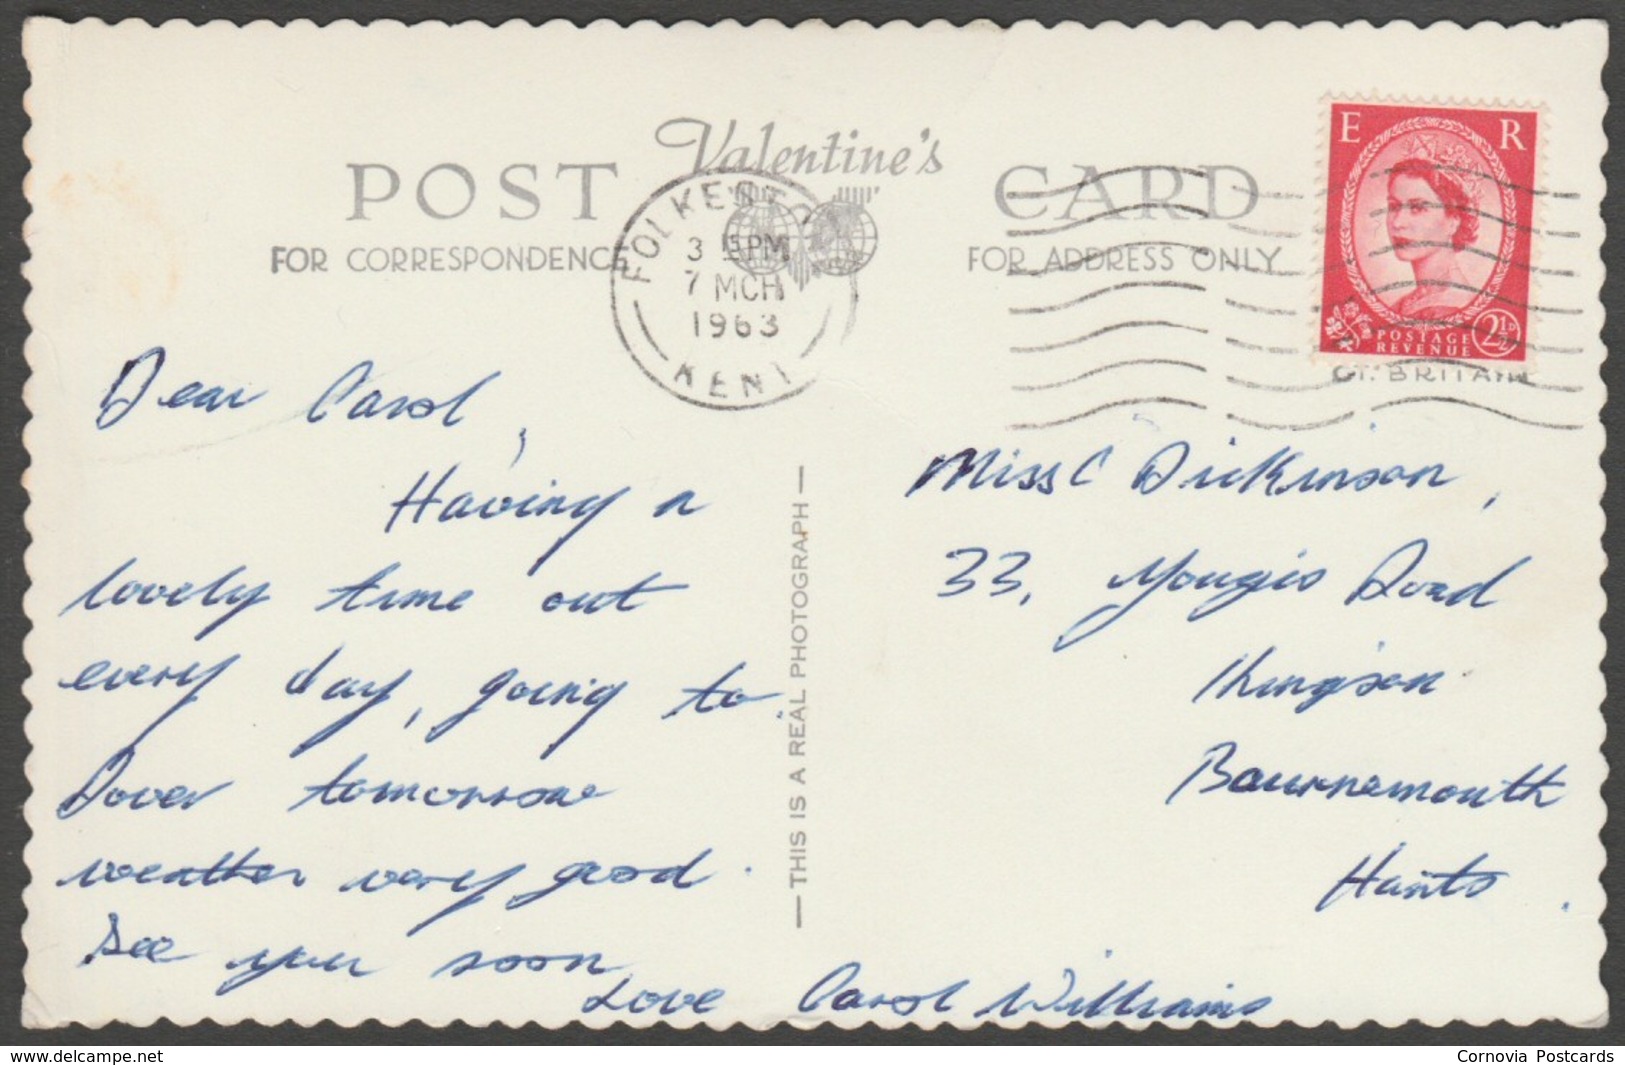 POST Valentine's CARD
FOR CORRESPONDENCE
FOR ADDRESS ONLY
FOLKESTO
3 15 PM
7 MCH
1963
KENT
E R
POSTAGE
REVENUE
2½D
GT. BRITAIN
Dear Carol,
Having a
lovely time out
every day, going to
Dover tomorrow
weather very good.
See you soon
Love Carol Williams
— THIS IS A REAL PHOTOGRAPH —
Miss C Dickinson,
33, Road
Kingson
Bournemouth
Hants.
delcampe.net
Cornovia Postcards